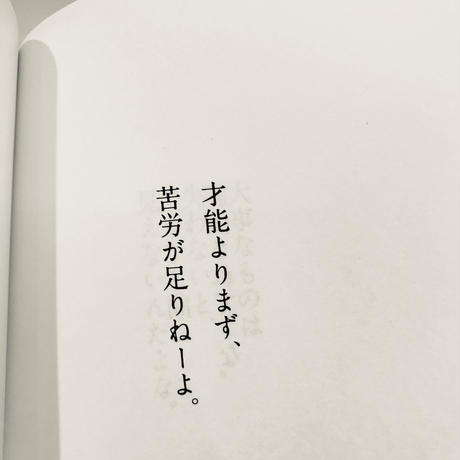 才能よりまず、
苦労が足りねーよ。